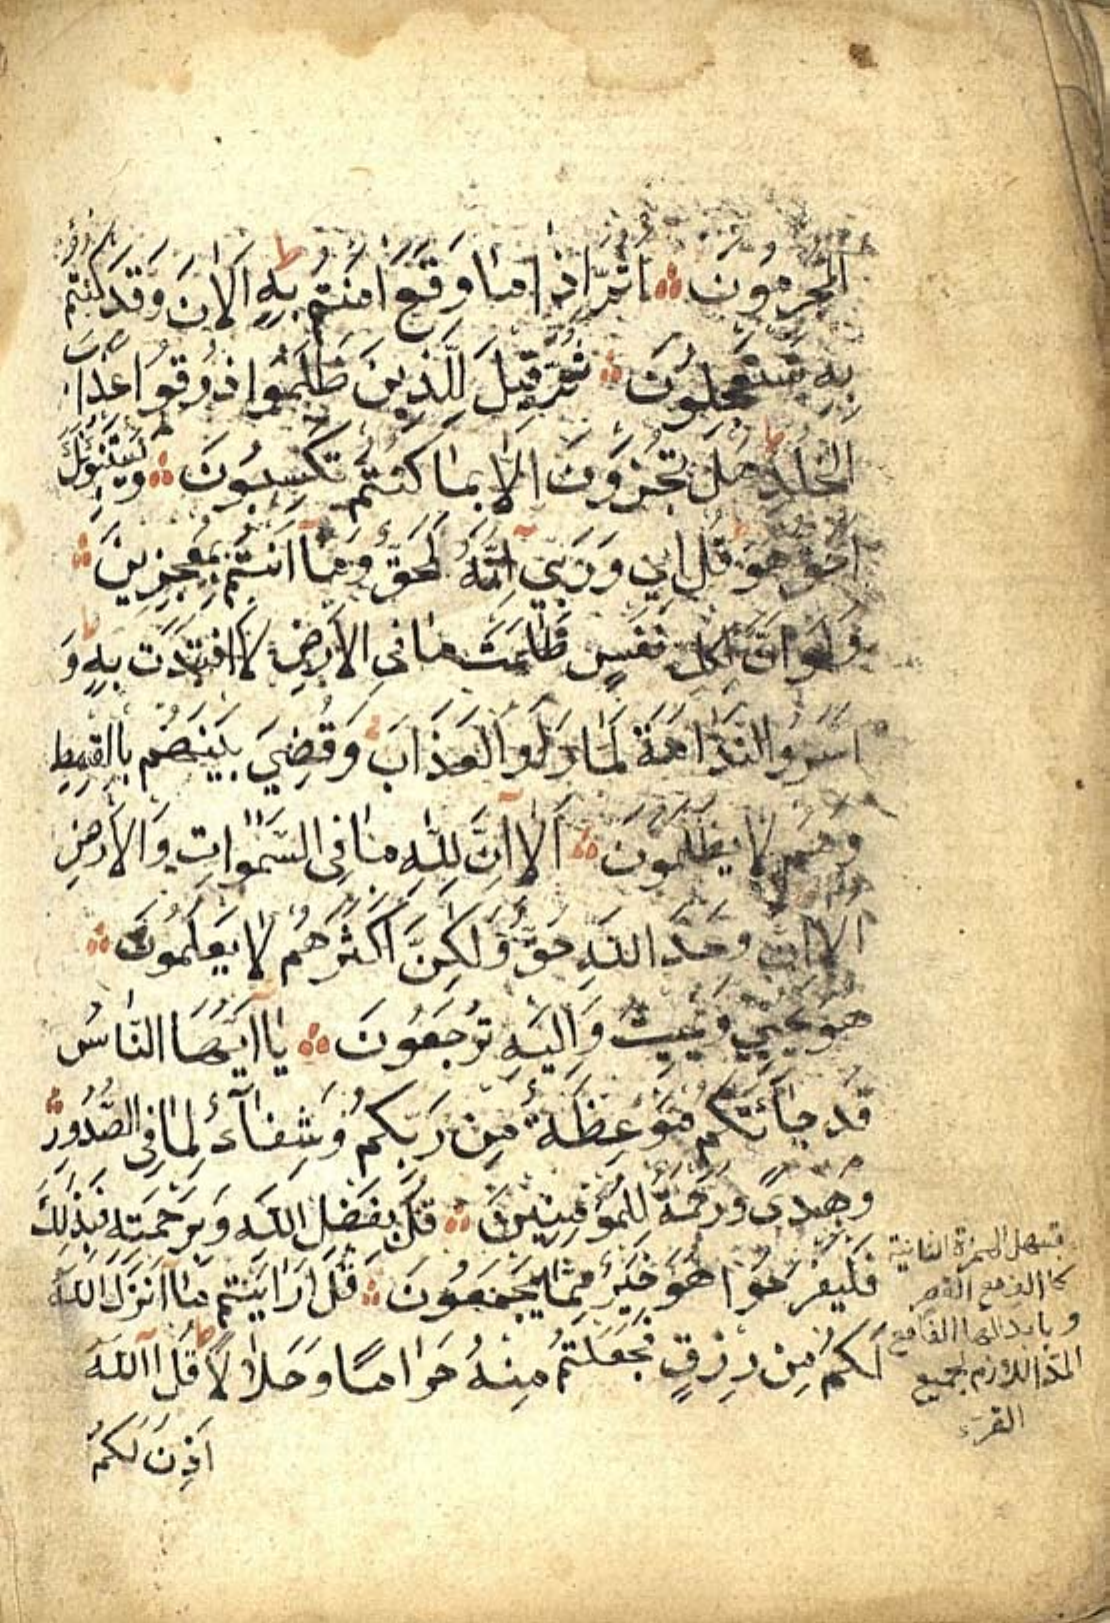 المجرمون اثم اذا ما وقع امنتم به الان وقد كنتم
به تستعجلون ثم قيل للذين ظلموا ذوقوا عذاب
الخلد هل تجزون الا بما كنتم تكسبون ويستنبؤنك
احق هو قل اي وربي انه لحق وما انتم بمعجزين
ولو ان لكل نفس ظلمت ما في الارض لافتدت به و
اسروا الندامة لما راوا العذاب وقضي بينهم بالقسط
وهم لا يظلمون الا ان لله ما في السموات والارض
الا ان وعد الله حق ولكن اكثرهم لا يعلمون
هو يحيي ويميت واليه ترجعون يا ايها الناس
قد جائتكم موعظة من ربكم وشفاء لما في الصدور
وهدى ورحمة للمؤمنين قل بفضل الله وبرحمته فبذلك
فليفرحوا هو خير مما يجمعون قل ارايتم ما انزل الله
لكم من رزق فجعلتم منه حراما وحلالا قل الله
اذن لكم
تسهل الهمزة الثانية
كالالف مع القصر
وبابدالها الفا مع
المد اللازم لجميع
القراء